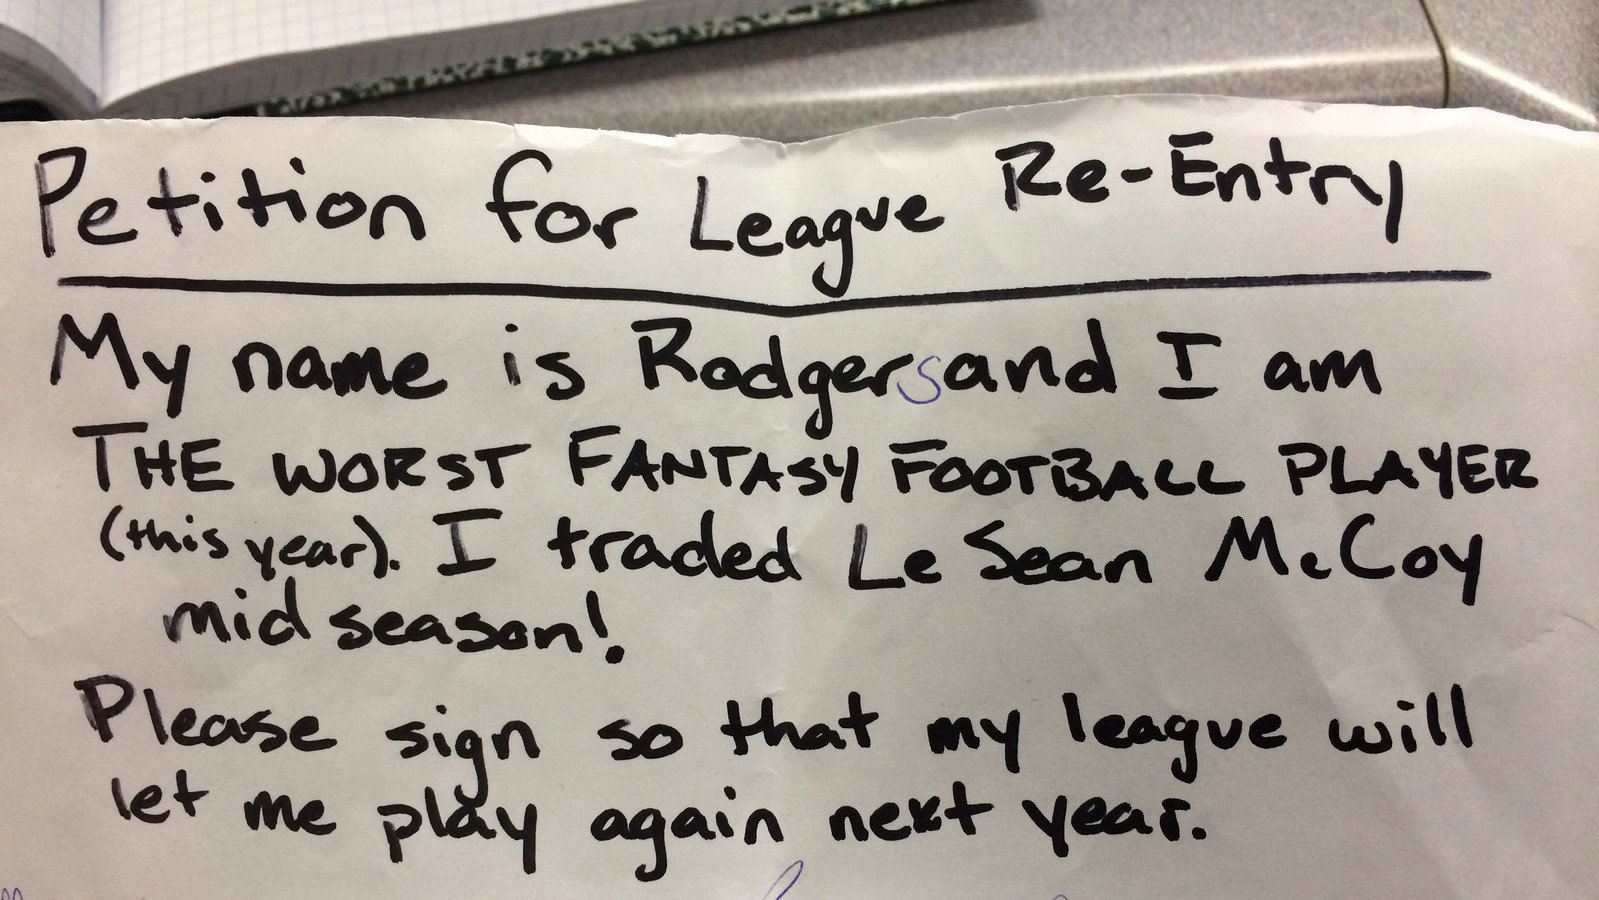 Petition for League Re-Entry
My name is Rodgers and I am
THE WORST FANTASY FOOTBALL PLAYER
(this year). I traded LeSean McCoy
mid season!
Please sign so that my league will
let me play again next year.